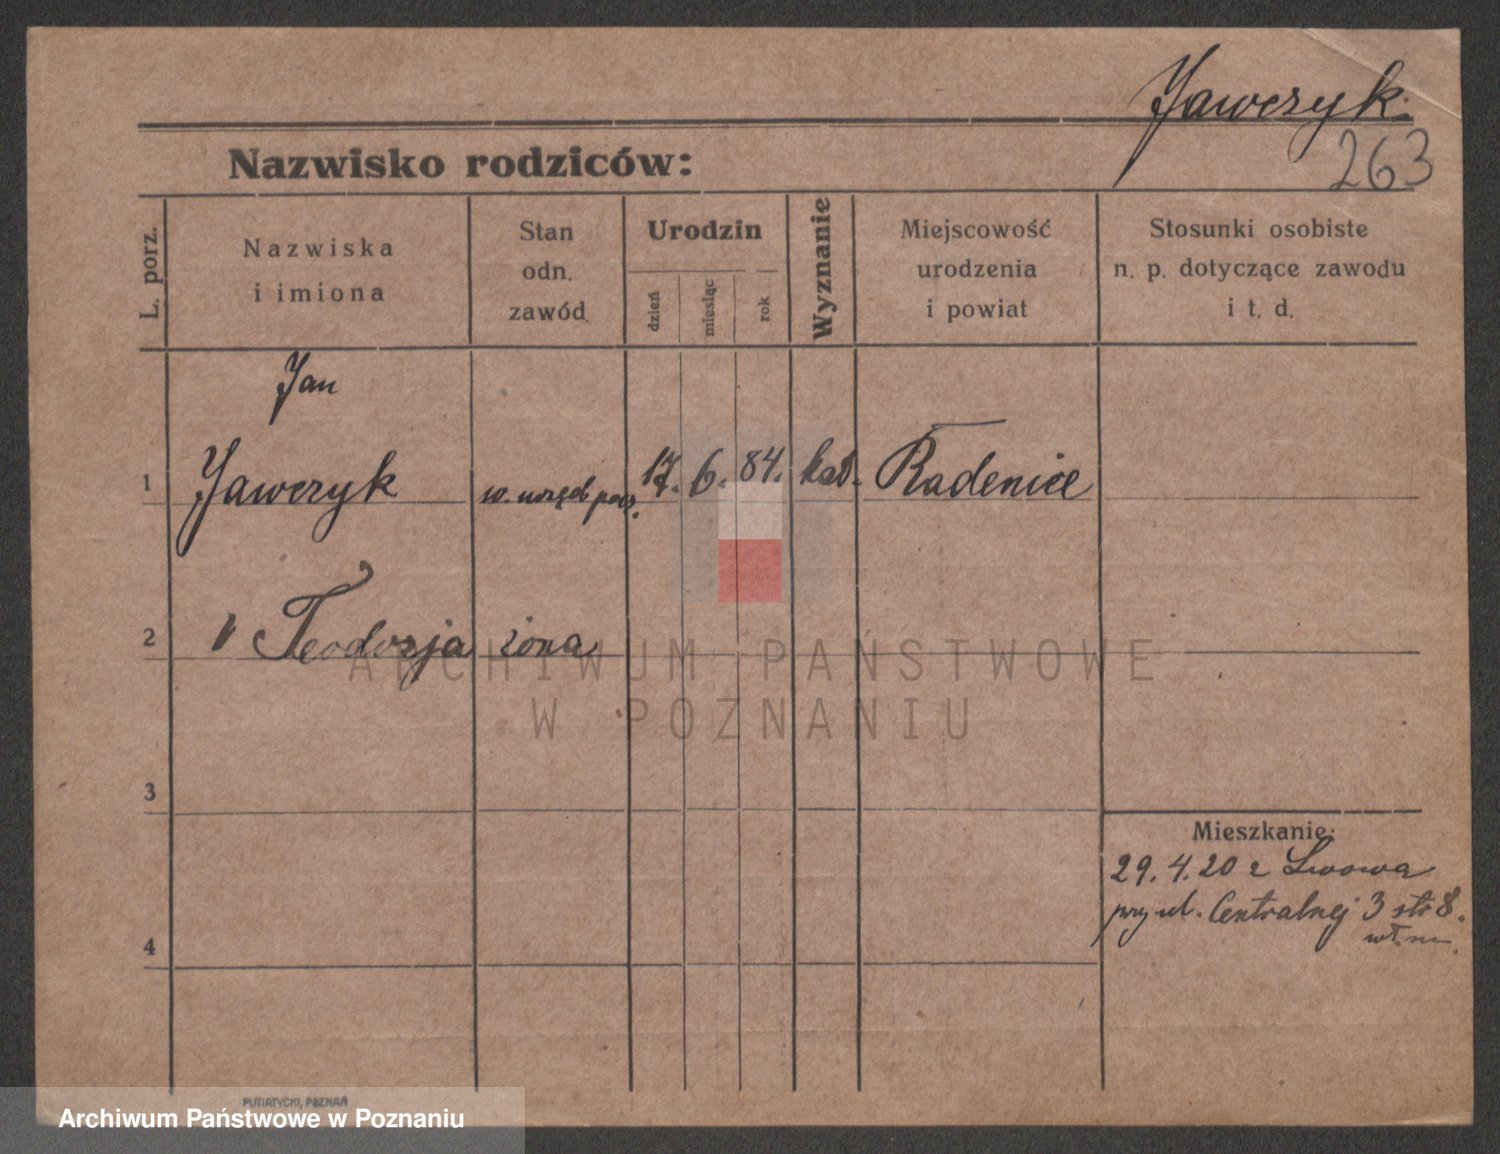 Jawczyk.
263
Nazwisko rodziców:
L. porz.
Nazwiska
i imiona
Stan
odn.
zawód
Urodzin
dzień
miesiąc
rok
Wyznanie
Miejscowość
urodzenia
i powiat
Stosunki osobiste
n. p. dotyczące zawodu
i t. d.
Jan
1 Jawczyk w. urzęd. pocz. 17. 6. 84. kat. Radenice
2 Teodozja żona
ARCHIWUM PAŃSTWOWE
W POZNANIU
3
Mieszkanie:
29. 4. 20 z Lwowa
przy ul. Centralnej 3 str 8.
4
PUTIATYCKI, POZNAŃ
Archiwum Państwowe w Poznaniu